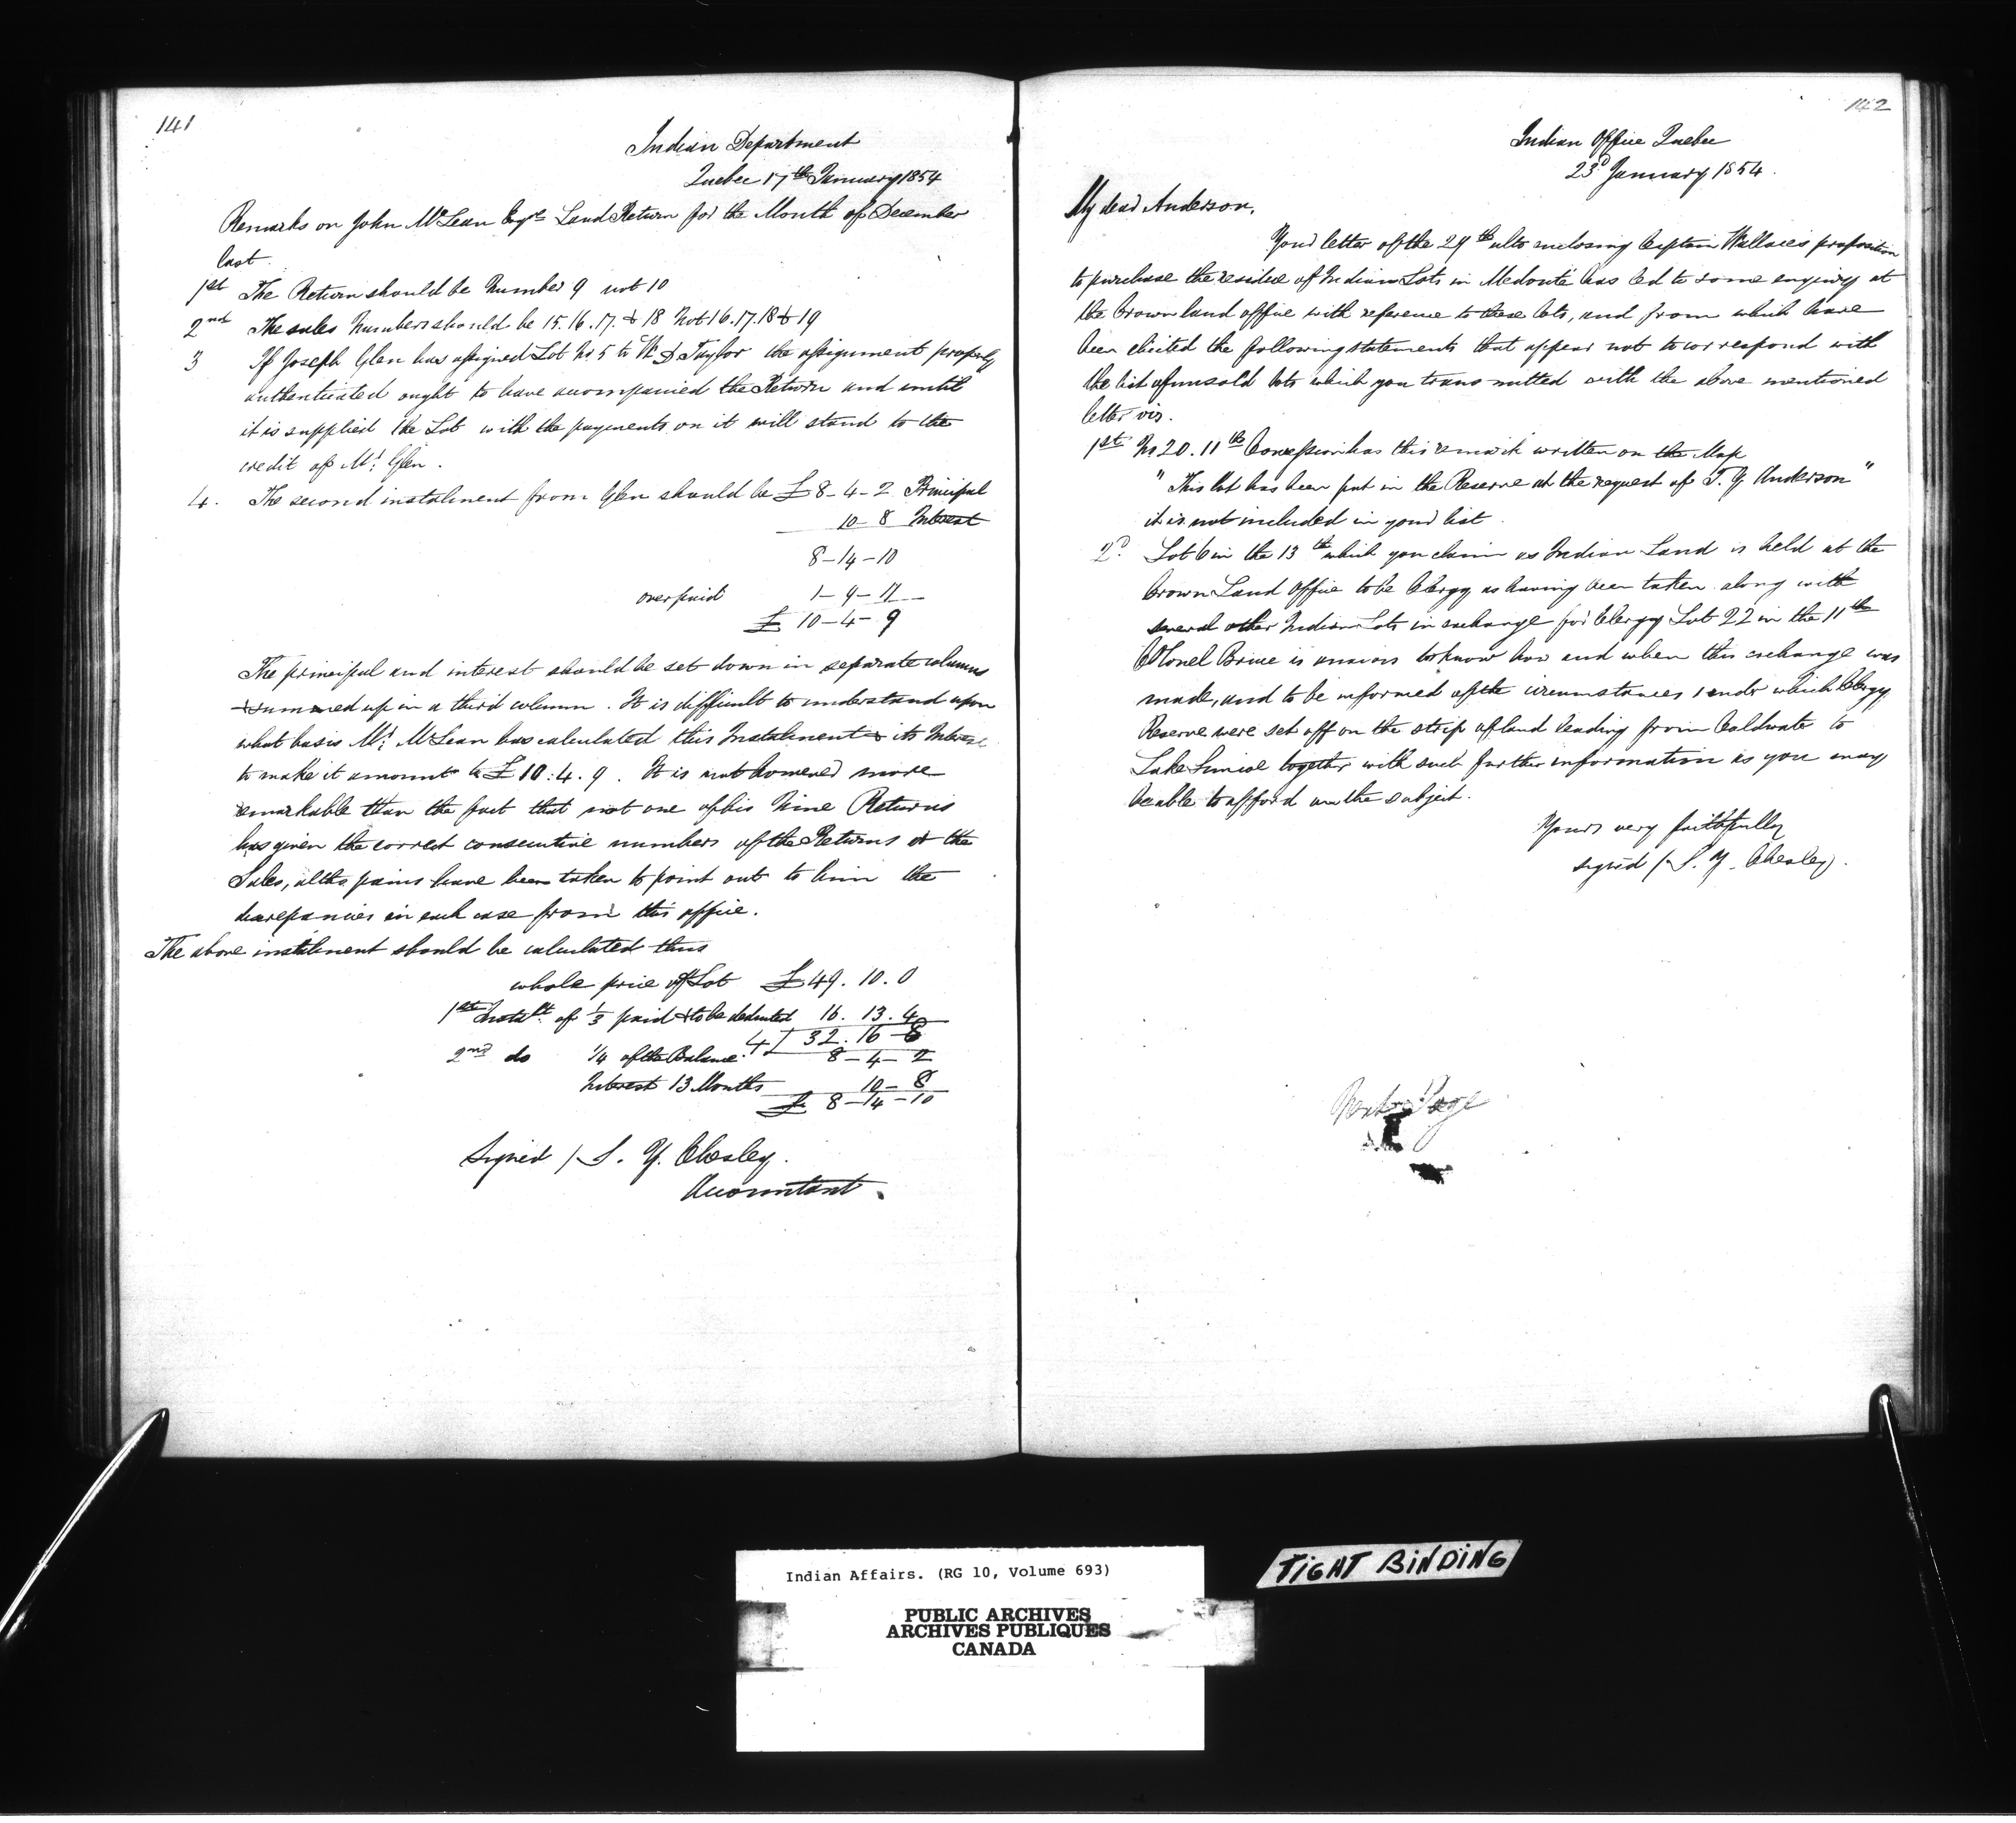 141
Indian Department
Quebec 17th January 1854
Remarks on John McLean Esqre Land Return for the Month of December
last.
1st The Return should be Number 9 not 10
2nd The sales Numbers should be 15.16.17. & 18 Not 16.17.18 & 19
3 If Joseph Glen has assigned Lot No 5 to W. D Taylor the assignment properly
authenticated ought to have accompanied the Return and until
it is supplied the Lot with the payments on it will stand to the
credit of Mr. Glen.
4. The second instalment from Glen should be £8-4-2 Principal
10-8 Interest
8-14-10
overpaid 1-9-11
£ 10-4-9
The principal and interest should be set down in separate columns
& summed up in a third column. It is difficult to understand upon
what basis Mr. McLean has calculated this Instalment & its Interest
to make it amount to £10:4.9. It is not however more
remarkable than the fact that not one of his Nine Returns
has given the correct consecutive numbers of the Returns or the
Sales, altho pains have been taken to point out to him the
discrepancies in each case from this office.
The above instalment should be calculated thus
whole price of Lot £49.10.0
1st Instalt. of 1/3 paid & to be deducted 16.13.4
4 | 32.16-8
2nd do 1/4 of the Balance 8-4-2
Interest 13 Months 10-8
£ 8-14-10
Signed / S. Y. Chesley.
Accountant.
142
Indian Office Quebec
23d January 1854.
My dear Anderson,
Your letter of the 29th ulto enclosing Captain Wallace's proposition
to purchase the residue of Indian Lots in Medonté has led to some enquiry at
the Crown land office with reference to these lots, and from which have
been elicited the following statements that appear not to correspond with
the list of unsold lots which you transmitted with the above mentioned
letter viz.
1st No 20. 11th Concession has this remark written on the Map
"This lot has been put in the Reserve at the request of T. G. Anderson"
it is not included in your list.
2d. Lot 6 in the 13th which you claim as Indian Land is held at the
Crown Land Office to be Clergy as having been taken along with
several other Indian Lots in exchange for Clergy Lot 22 in the 11th
Colonel Bruce is anxious to know how and when this exchange was
made, and to be informed of the circumstances under which Clergy
Reserve were set off on the strip of land leading from Coldwater to
Lake Simcoe together with such further information as you may
be able to afford on the subject.
Yours very faithfully
signed / S. Y. Chesley).
Next Page
Indian Affairs. (RG 10, Volume 693)
PUBLIC ARCHIVES
ARCHIVES PUBLIQUES
CANADA
TIGHT BINDING